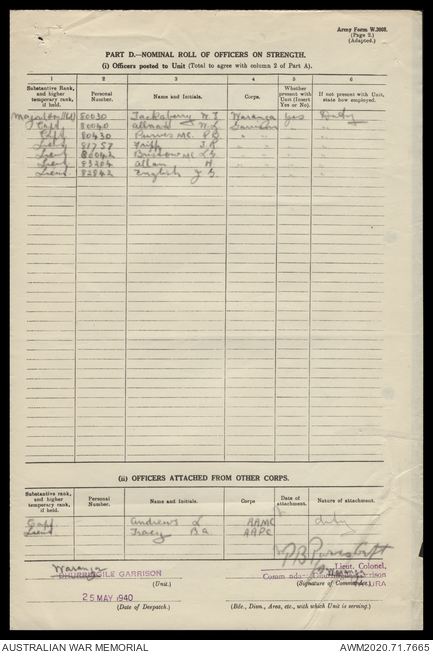 Army Form W.3008.
(Page 2.)
(Adapted.)
PART D.—NOMINAL ROLL OF OFFICERS ON STRENGTH.
(i) Officers posted to Unit (Total to agree with column 2 of Part A).
1 2 3 4 5 6
Substantive Rank, and higher temporary rank, if held. Personal Number. Name and Initials. Corps. Whether present with Unit (Insert Yes or No). If not present with Unit, state how employed.
80030 Tackaberry W.J. Waranga Yes Duty
Capt 80040 W.L. Garrison " "
Capt 80430 Purves MC. " " " "
Lieut 81757 " " " "
Lieut Bristow MC L.G. " " " "
Lieut 83204 Allan H " " " "
Lieut 82842 English J G " " " "
(ii) OFFICERS ATTACHED FROM OTHER CORPS.
Substantive rank, and higher temporary rank, if held. Personal Number. Name and Initials. Corps Date of attachment. Nature of attachment.
Capt Andrews L AAMC Duty
Lieut Tracy B A AAPC
Waranga
GARRISON
(Unit.)
25 MAY 1940
(Date of Despatch.)
Lieut. Colonel,
(Signature of Commander.)
(Bde., Divn., Area, etc., with which Unit is serving.)
AUSTRALIAN WAR MEMORIAL
AWM2020.71.7665